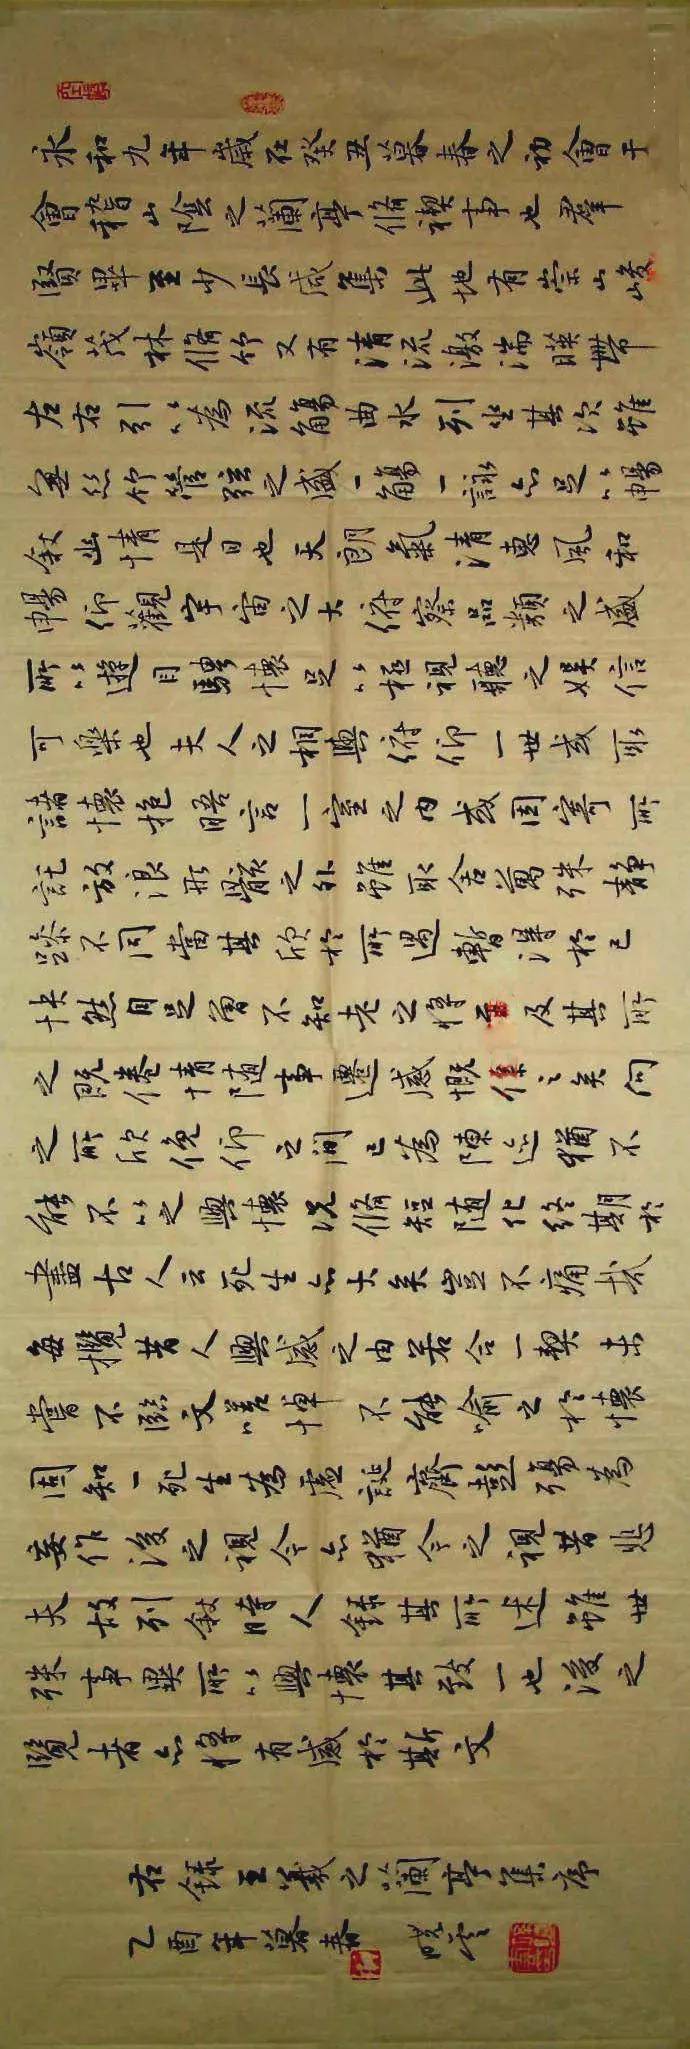 永和九年歲在癸丑暮春之初會于
會稽山陰之蘭亭脩禊事也羣
賢畢至少長咸集此地有崇山峻
嶺茂林脩竹又有清流激湍暎帶
左右引以為流觴曲水列坐其次雖
無絲竹管弦之盛一觴一詠亦足以暢
敘幽情是日也天朗氣清惠風和
暢仰觀宇宙之大俯察品類之盛
所以遊目騁懷足以極視聽之娛信
可樂也夫人之相與俯仰一世或取
諸懷抱晤言一室之內或因寄所
託放浪形骸之外雖取舍萬殊靜
躁不同當其欣於所遇暫得於己
快然自足曾不知老之將至及其所
之既倦情隨事遷感慨係之矣向
之所欣俛仰之間已為陳迹猶不
能不以之興懷況脩短隨化終期於
盡古人云死生亦大矣豈不痛哉
每攬昔人興感之由若合一契未
嘗不臨文嗟悼不能喻之於懷
固知一死生為虛誕齊彭殤為
妄作後之視今亦猶今之視昔悲
夫故列敘時人錄其所述雖世
殊事異所以興懷其致一也後之
覽者亦將有感於斯文
右錄王羲之蘭亭集序
乙酉年暮春 曉雲